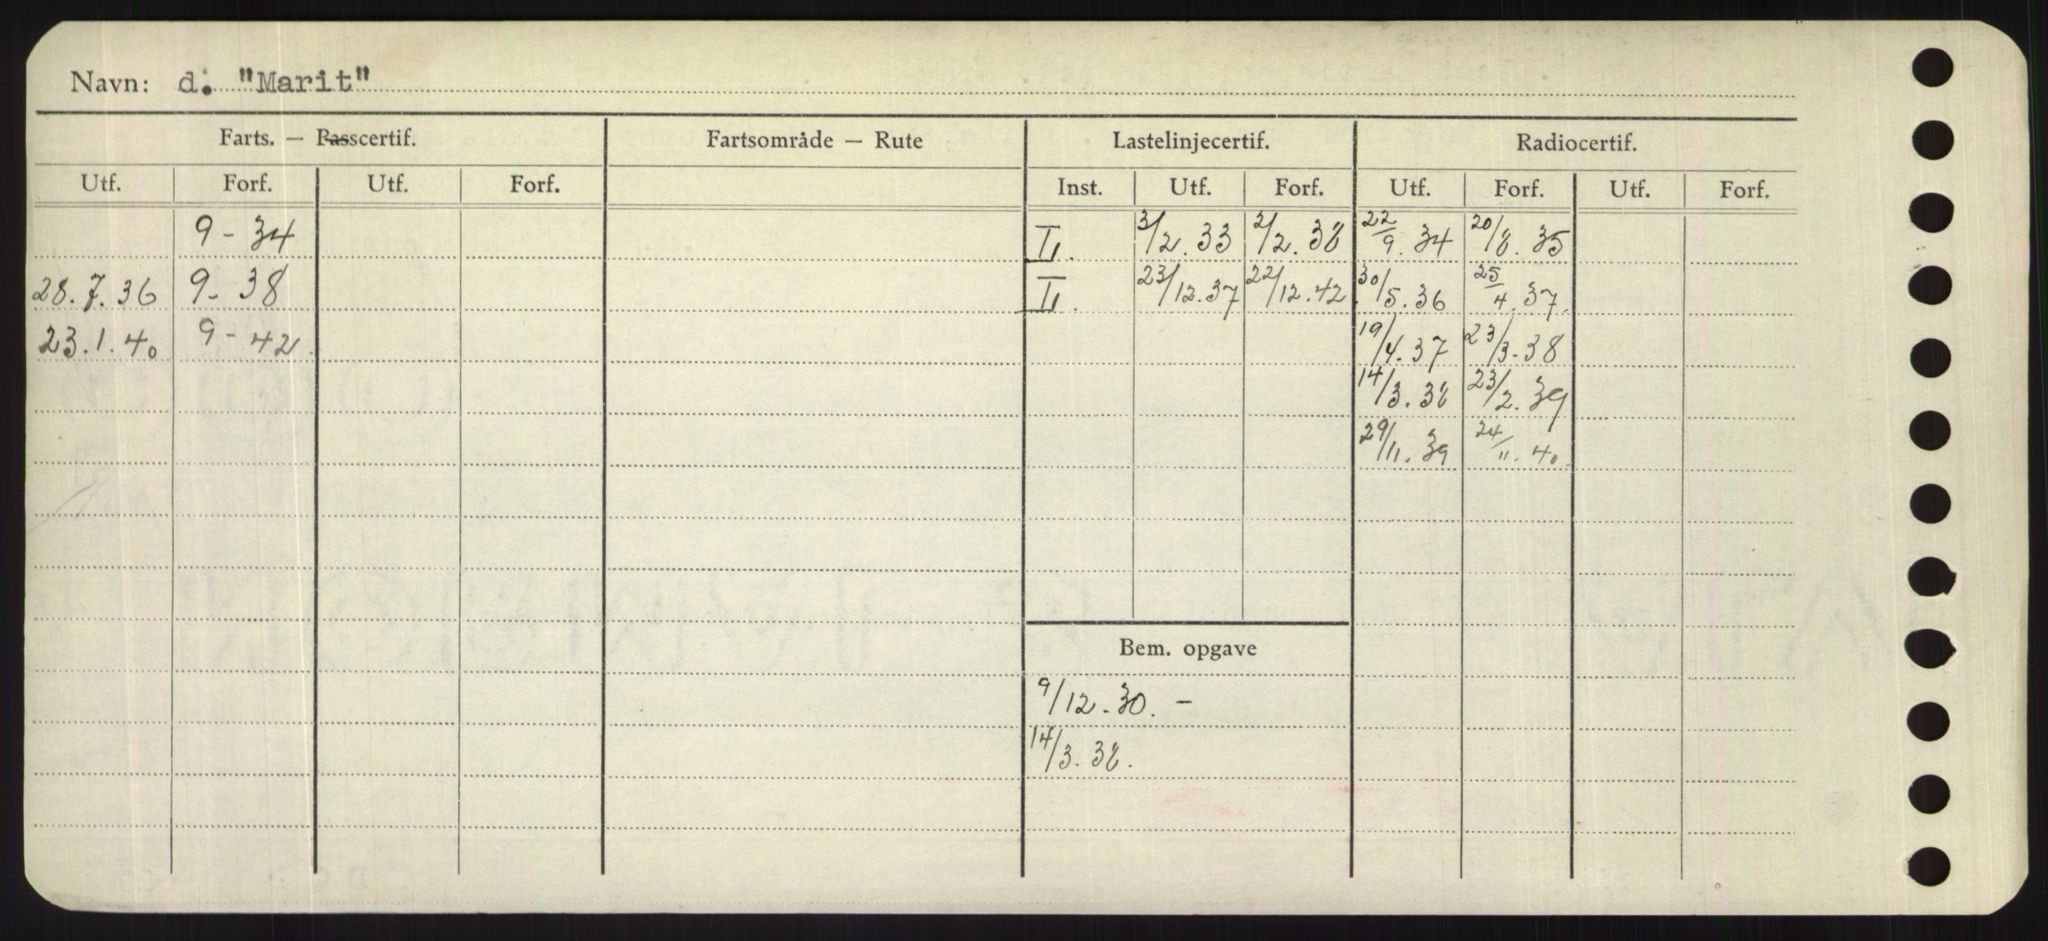 Navn: d. "Marit"
Farts. — Passcertif. Fartsområde — Rute Lastelinjecertif. Radiocertif.
Utf. Forf. Utf. Forf. Inst. Utf. Forf. Utf. Forf. Utf. Forf.
9 - 34 II. 3/2. 33 2/2. 38 22/9. 34 20/8. 35
28. 7. 36 9 - 38 II. 23/12. 37 22/12. 42 30/5. 36 25/4. 37.
23. 1. 40 9 - 42. 19/4. 37 23/3. 38
14/3. 38 23/2. 39
29/11. 39 24/11. 40.
Bem. opgave
9/12. 30. -
14/3. 38.